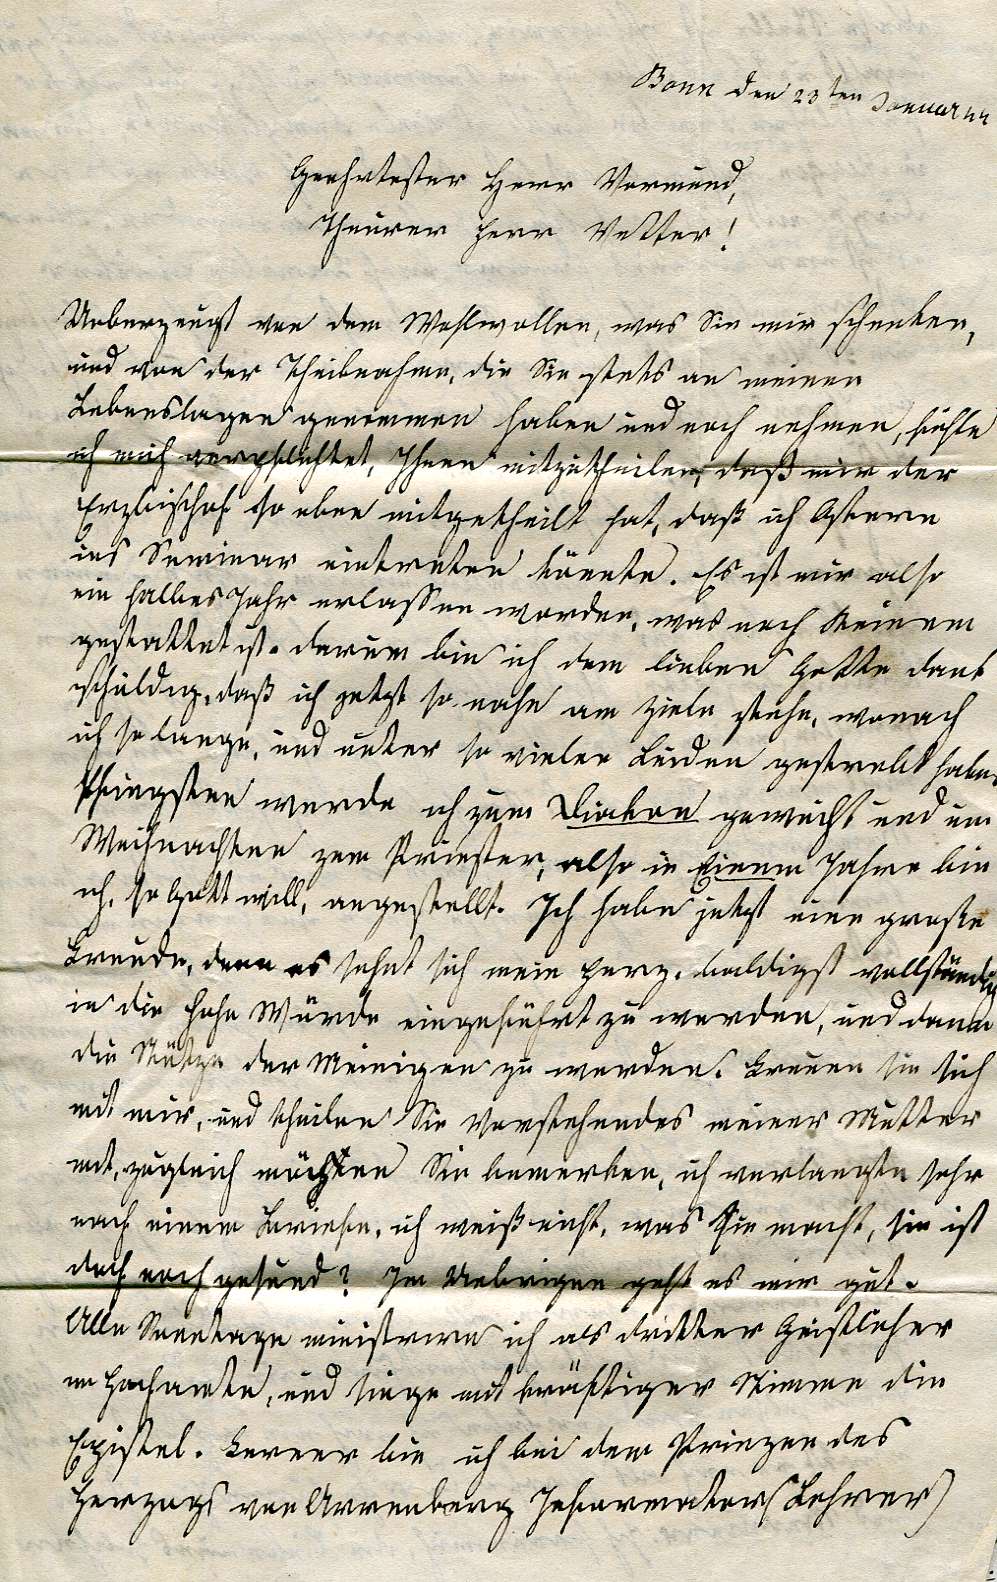 Bonn den 23ten Januar 44
Geehrtester Herr Vormund,
Theurer Herr Vetter!
Ueberzeugt von dem Wohlwollen, was Sie mir schenken,
und von der Theilnahme, die Sie stets an meinen
Lebenslagen genommen haben und noch nehmen, fühle
ich mich verpflichtet, Ihnen mitzutheilen, daß mir der
Erzbischof so eben mitgetheilt hat, daß ich Ostern
ins Seminar eintreten könnte. Es ist mir also
ein halbes Jahr erlassen worden, was noch Keinem
gestattet ist. Darum bin ich dem lieben Gotte Dank
schuldig, daß ich jetzt so nahe am Ziele stehe, wonach
ich so lange, und unter so vielen Leiden gestrebt habe.
Pfingsten werde ich zum Diakon geweiht und um
Weihnachten zum Priester, also in Einem Jahre bin
ich, so Gott will, angestellt. Ich habe jetzt eine große
Freude, denn es sehnt sich mein Herz, baldigst vollständig
in die hohe Würde eingeführt zu werden, und dann
die Stütze der Meinigen zu werden. Freuen sie sich
mit mir, und theilen Sie Vorstehendes meiner Mutter
mit, zugleich möchten Sie bemerken, ich verlangte sehr
nach einem Briefe, ich weiß nicht, was sie macht, sie ist
doch noch gesund? Im Uebrigen geht es mir gut.
Alle Sonntage ministrire ich als dritter Geistlicher
im Hochamte, und singe mit kräftiger Stimme die
Epistel. Ferner bin ich bei dem Prinzen des
Herzogs von Arrenberg Informator (Lehrer)